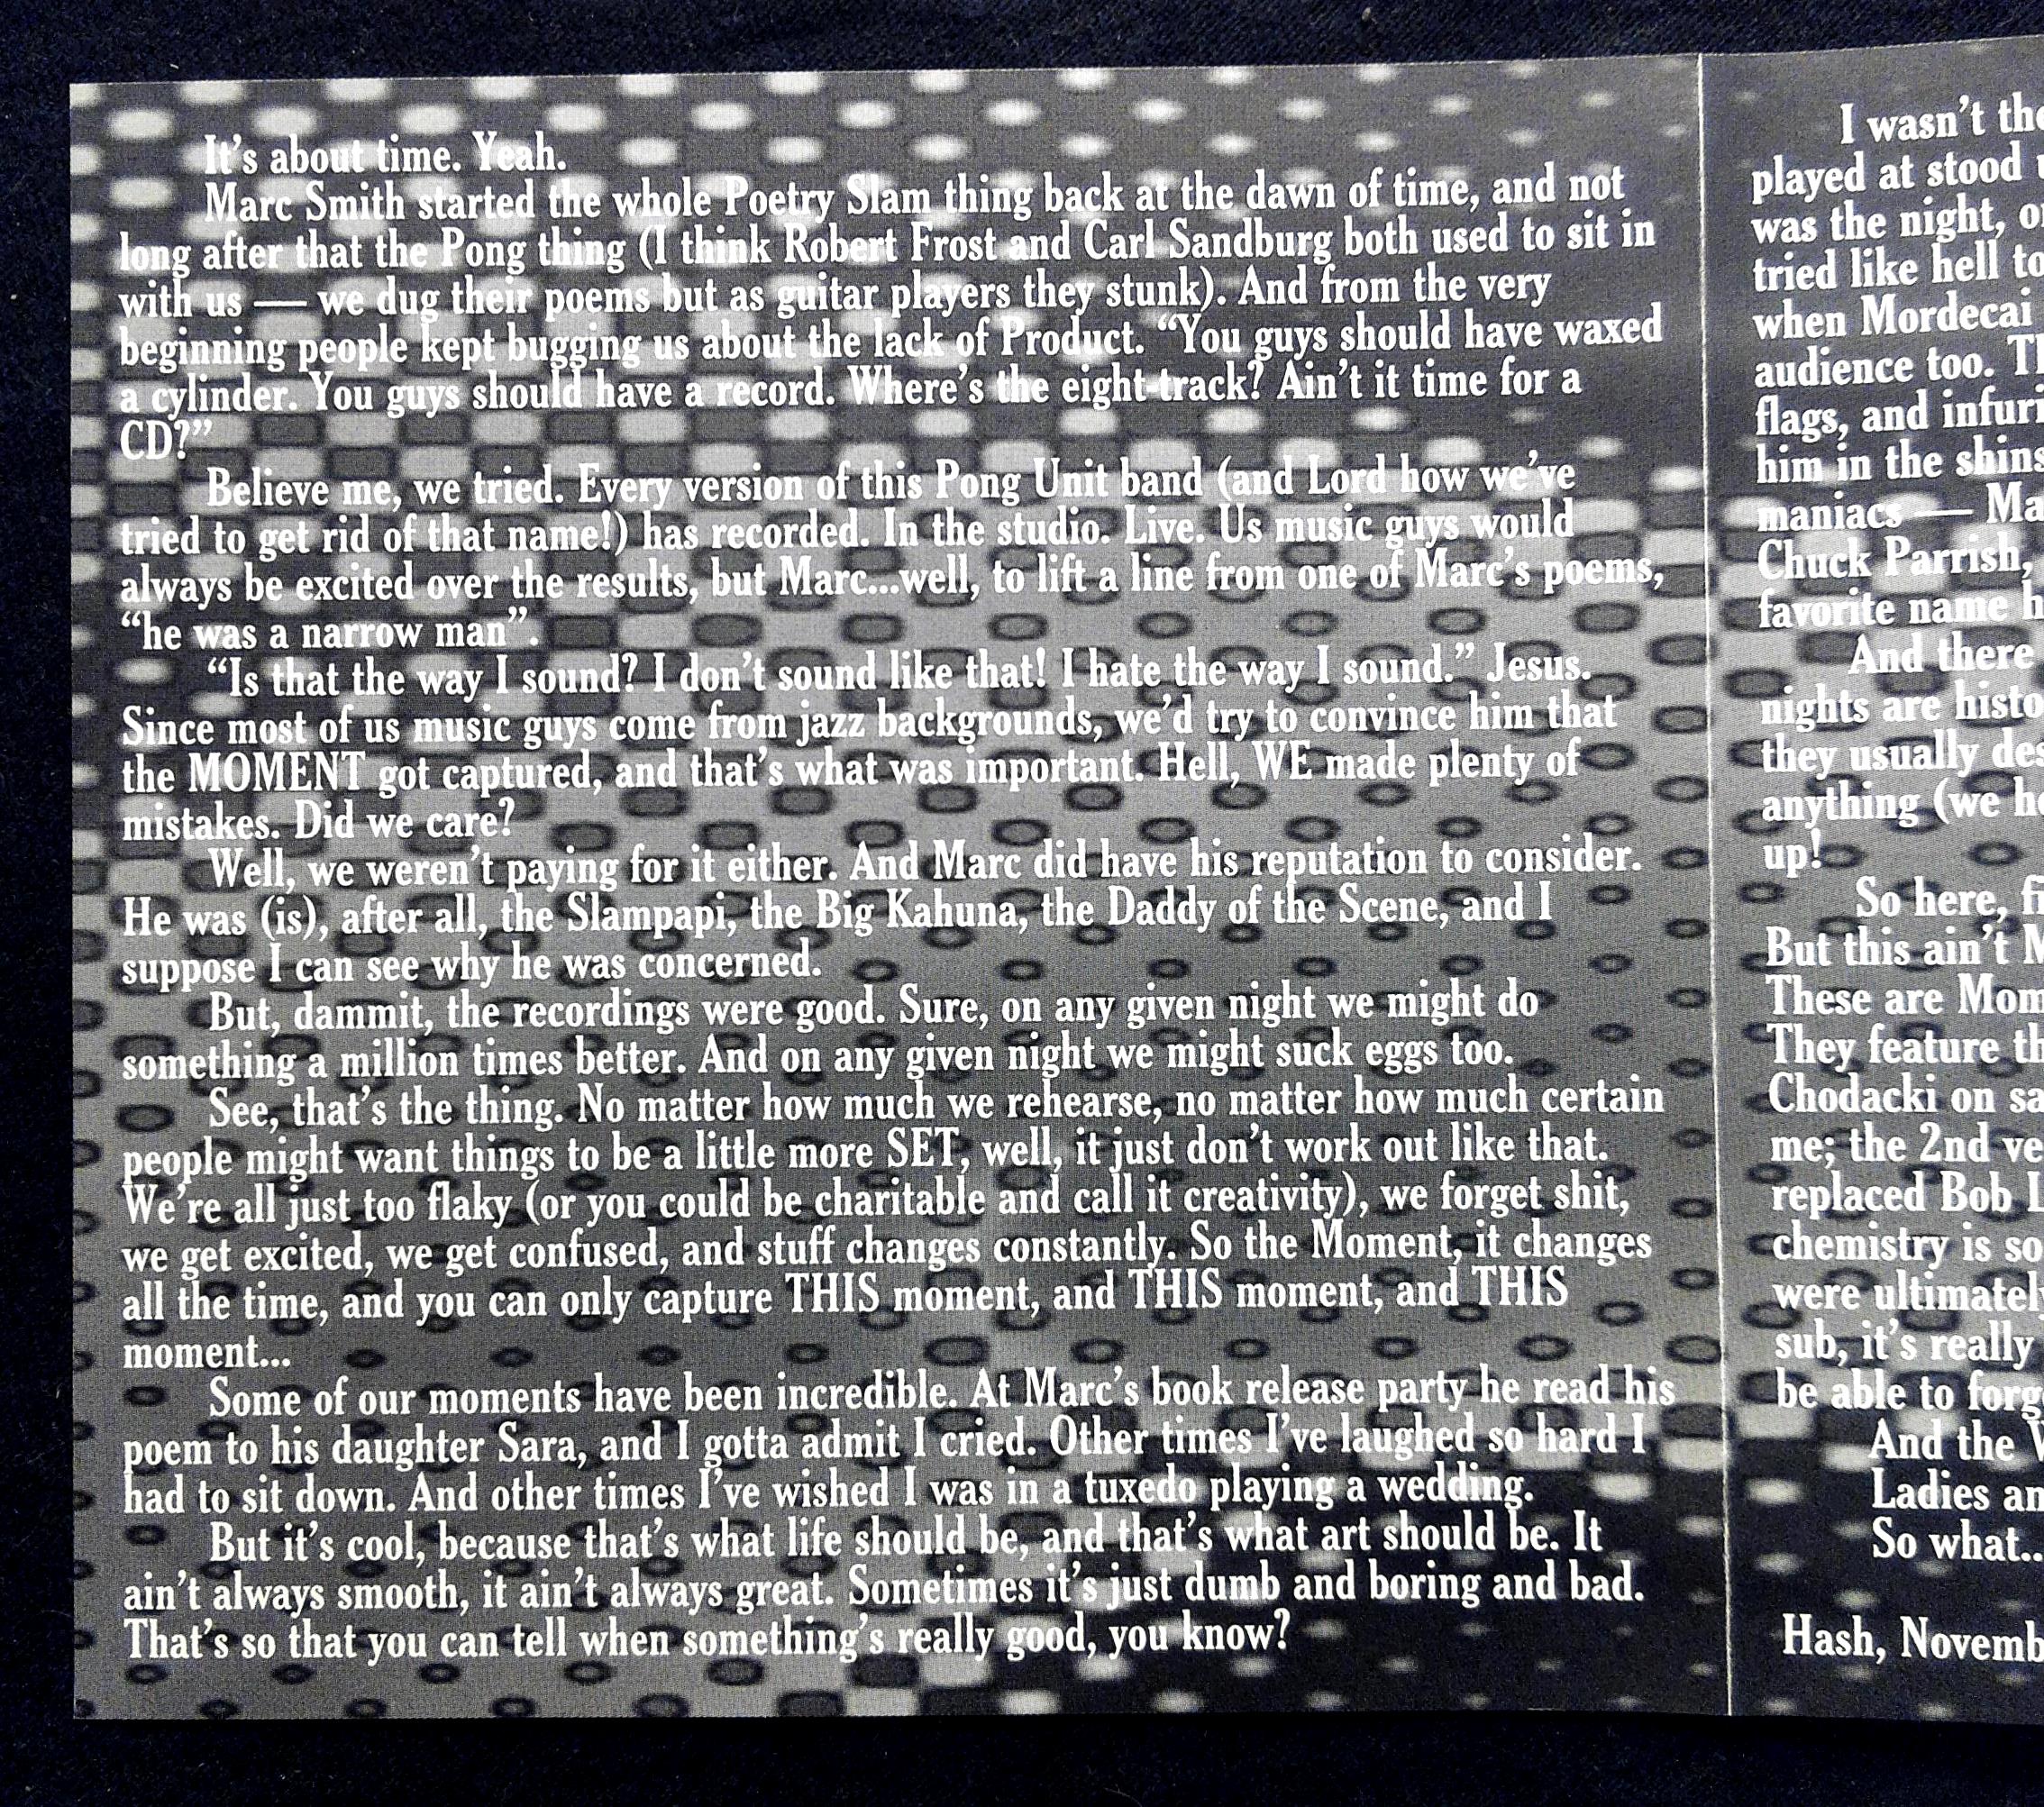 It's about time. Yeah.
Marc Smith started the whole Poetry Slam thing back at the dawn of time, and not
long after that the Pong thing (I think Robert Frost and Carl Sandburg both used to sit in
with us — we dug their poems but as guitar players they stunk). And from the very
beginning people kept bugging us about the lack of Product. “You guys should have waxed
a cylinder. You guys should have a record. Where's the eight-track? Ain't it time for a
CD?”
Believe me, we tried. Every version of this Pong Unit band (and Lord how we've
tried to get rid of that name!) has recorded. In the studio. Live. Us music guys would
always be excited over the results, but Marc...well, to lift a line from one of Marc's poems,
“he was a narrow man”.
“Is that the way I sound? I don't sound like that! I hate the way I sound.” Jesus.
Since most of us music guys come from jazz backgrounds, we'd try to convince him that
the MOMENT got captured, and that's what was important. Hell, WE made plenty of
mistakes. Did we care?
Well, we weren't paying for it either. And Marc did have his reputation to consider.
He was (is), after all, the Slampapi, the Big Kahuna, the Daddy of the Scene, and I
suppose I can see why he was concerned.
But, dammit, the recordings were good. Sure, on any given night we might do
something a million times better. And on any given night we might suck eggs too.
See, that's the thing. No matter how much we rehearse, no matter how much certain
people might want things to be a little more SET, well, it just don't work out like that.
We're all just too flaky (or you could be charitable and call it creativity), we forget shit,
we get excited, we get confused, and stuff changes constantly. So the Moment, it changes
all the time, and you can only capture THIS moment, and THIS moment, and THIS
moment...
Some of our moments have been incredible. At Marc's book release party he read his
poem to his daughter Sara, and I gotta admit I cried. Other times I've laughed so hard I
had to sit down. And other times I've wished I was in a tuxedo playing a wedding.
But it's cool, because that's what life should be, and that's what art should be. It
ain't always smooth, it ain't always great. Sometimes it's just dumb and boring and bad.
That's so that you can tell when something's really good, you know?
I wasn't
played at stood
was the night,
tried like hell
when Mordecai
audience too.
flags, and
him in the shins
maniacs —
Chuck Parrish,
favorite name
And there
nights are
they usually
anything (we
up!
So here,
But this ain't
These are
They feature
Chodacki on
me; the 2nd
replaced Bob
chemistry is
were
sub, it's really
be able to
And the
Ladies
So what...
Hash,